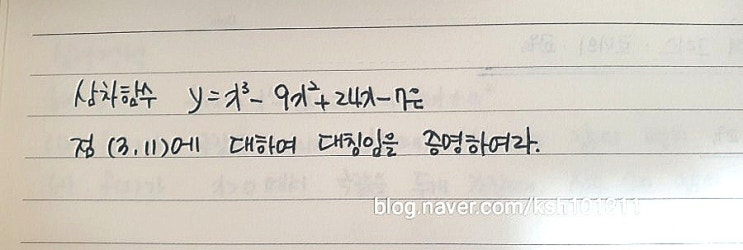 삼차함수 y=x³-9x²+24x-7은
점 (3,11)에 대하여 대칭임을 증명하여라.
blog.naver.com/ksh101911